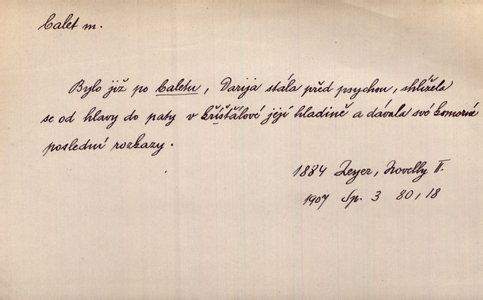 balet m.
Bylo již po baletu, Darija stála před psychou, shlížela
se od hlavy do paty v křišťálové její hladině a dávala své komorné
poslední rozkazy.
1884 Zeyer, Novelly II.
1907 Sp. 3 80, 18